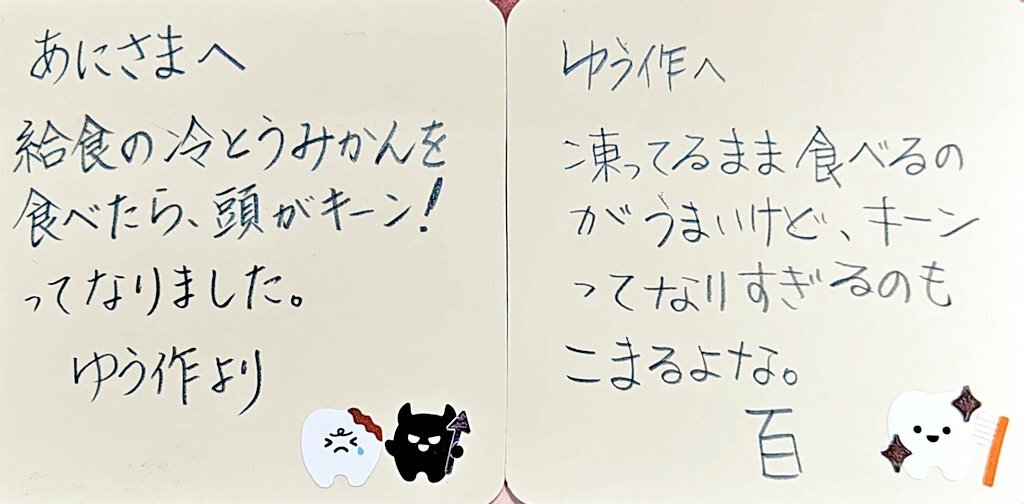 あにさまへ
給食の冷とうみかんを
食べたら、頭がキーン!
ってなりました。
ゆう作より
ゆう作へ
凍ってるまま食べるの
がうまいけど、キーン
ってなりすぎるのも
こまるよな。
百